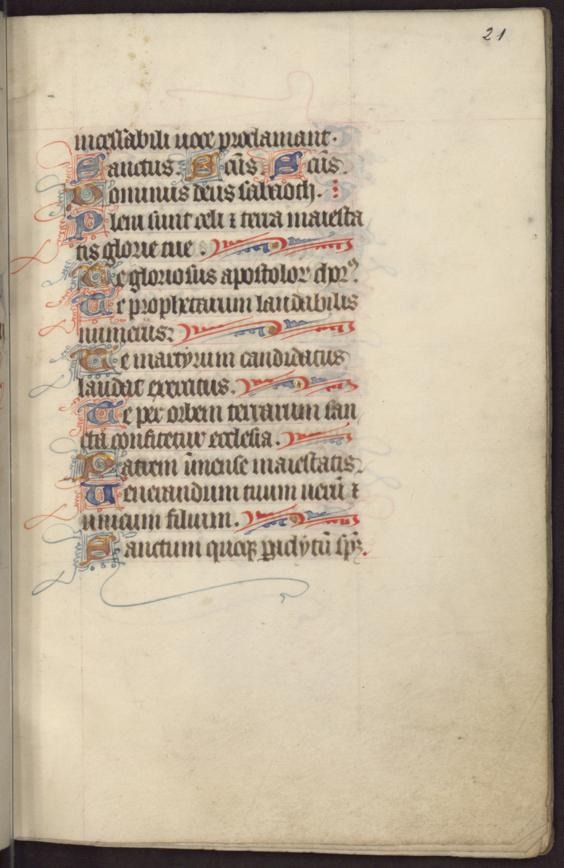 21
incessabili uoce proclamant.
Sanctus. Scūs Scūs.
Dominus deus sabaoth.
Pleni sunt celi ⁊ terra maiesta
tis glorie tue.
Te gloriosus apostolor chorꝰ.
Te prophetarum laudabilis
numerus:
Te martyrum candidatus
laudat exercitus.
Te per orbem terrarum san
cta confitetur ecclesia.
Patrem īmense maiestatis:
Uenerandum tuum uerū ⁊
unicum filium.
Sanctum quoqꝫ ꝑaclytū spm̄.